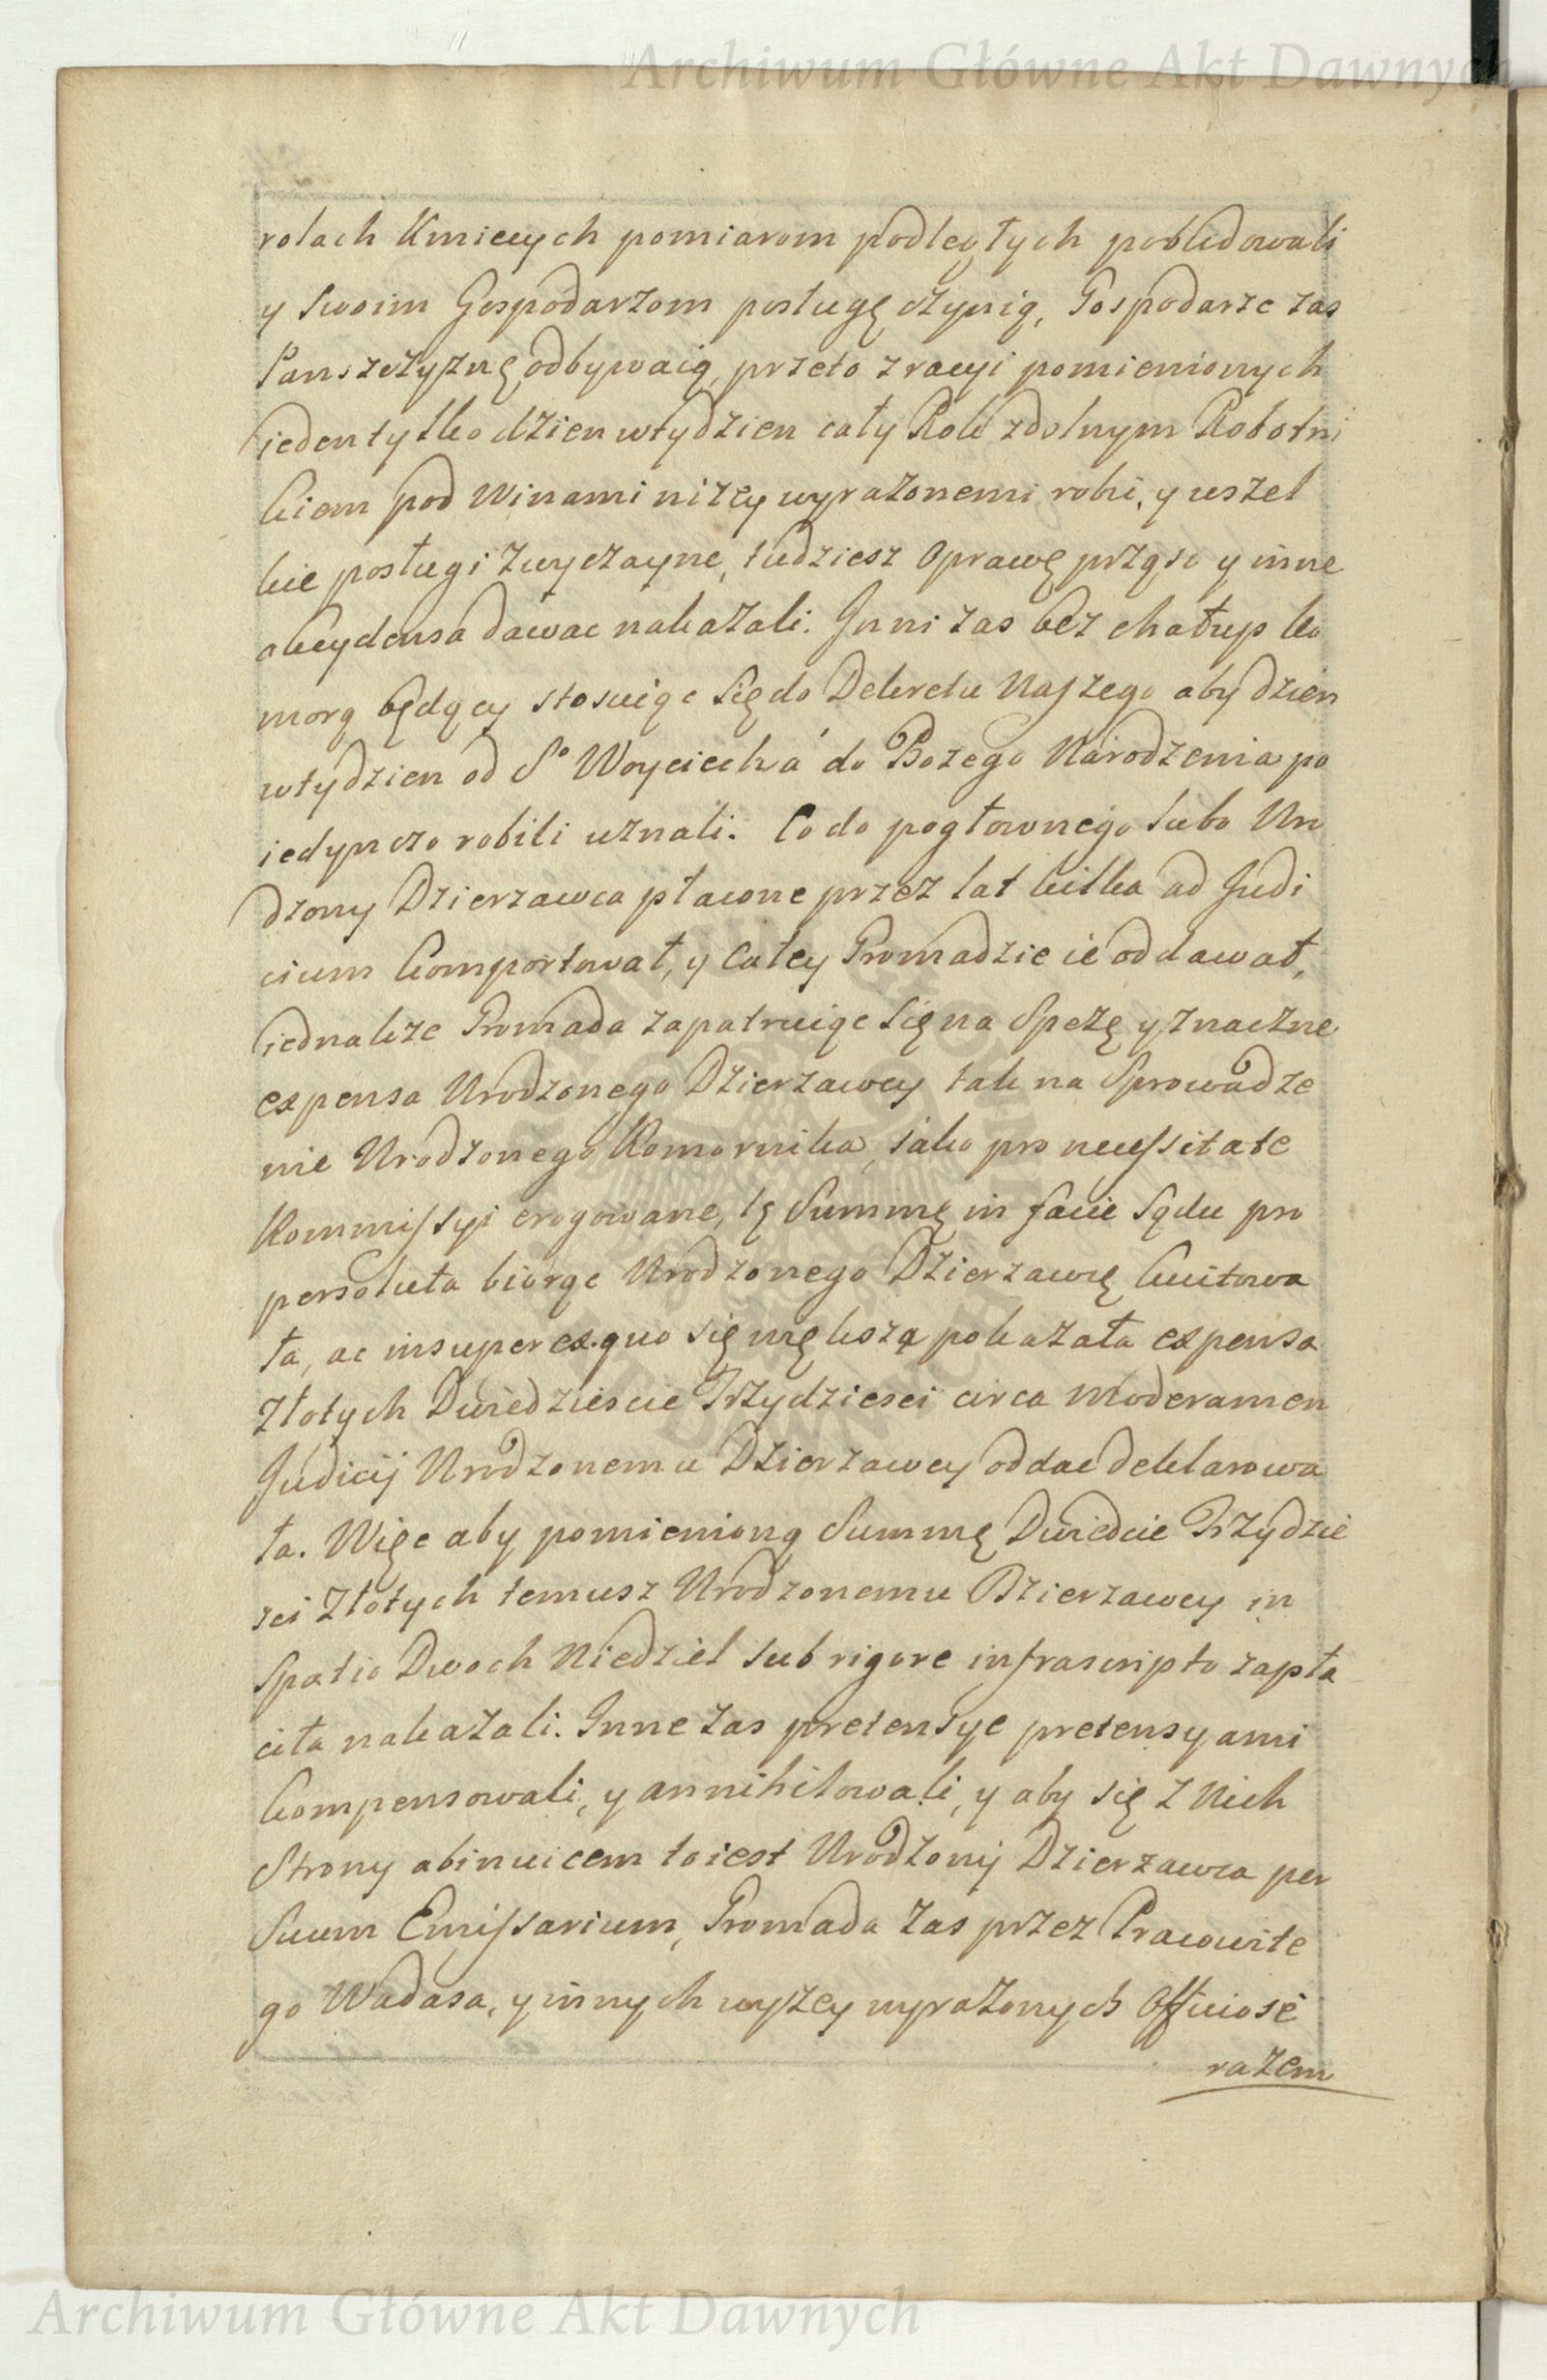 Archiwum Główne Akt Dawnych
rolach Kmiecych pomiarom podległych pobudowali
y Swoim Gospodarzom posługę czynią, Gospodarze zas
Panszczyznę odbywaią, przeto z racyi pomienionych
ieden tylko dzien w tydzien cały Rok zdolnym Robotni
kiem pod Winami nizey wyrazonemi robić, y wszel
kie posługi zwyczayne, tudziesz Oprawę przęse y inne
akcydensa dawac nakazali. Inni zas bez chałup ko
morą będący stosuiąc Się do Dekretu Naszego aby dzien
w tydzien od So Woyciecha do Bozego Narodzenia po
iedynczo robili uznali. Co do pogłownego lubo Uro
dzony Dzierzawca płacone przez lat kilka ad Judi
cium komportował, y Całey Gromadzie ie oddawał,
iednakze Gromada zapatruiąc Się na Spezę y znaczne
expensa Urodzonego Dzierzawcy tak na Sprowadze
nie Urodzonego Komornika, iako pro necessitate
Kommissyi erogowane, tę Summę in facie Sądu pro
persoluta biorąc Urodzonego Dzierzawcę kwitowa
ła, ac insuper ex quo się większa pokazała expensa
Złotych Dwiedziescie Trzydziesci circa moderamen
Judicij Urodzonemu Dzierzawcy oddac deklarowa
ła. Więc aby pomienioną Summę Dwiescie Trzydzie
sci Złotych temusz Urodzonemu Dzierzawcy in
Spatio Dwoch Niedziel sub rigore infrascripto zapła
ciła nakazali. Inne zas pretensye pretensyami
kompensowali, y annihilowali, y aby się z Nich
Strony abinvicem to iest Urodzony Dzierzawca per
Suum Emissarium, Gromada zas przez Pracowite
go Wadasa, y innych wyzey wyrazonych Officiose
razem
Archiwum Główne Akt Dawnych